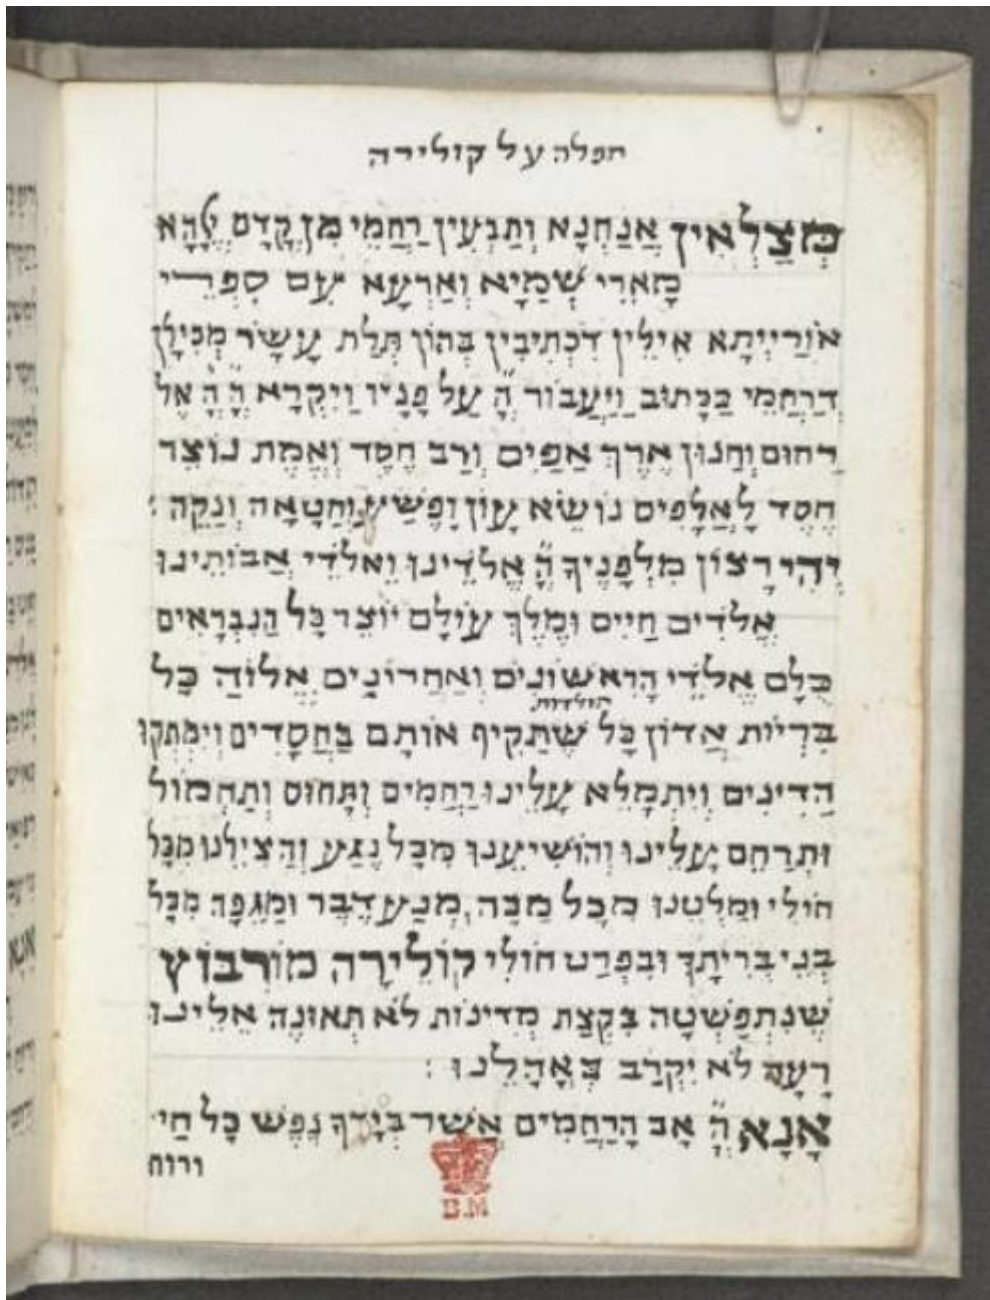 תפלה על קולירה
מְצַלְּאִין אֲנַחְנָא וְתַבְעִין רַחֲמֵי מִן קֳדָם אֱלָהָא
מָארֵי שְׁמַיָּא וְאַרְעָא עִם סִפְרֵי
אוֹרַיְיתָא אִילֵין דִכְתִיבִין בְּהוֹן תְּלַת עָשָׂר מְכִילָן
דְרַחֲמֵי כַּכָּתוּב וַיַּעֲבוֹר הָ׳ עַל פָּנָיו וַיִּקְרָא הָ׳ הָ׳ אֵל
רַחוּם וְחַנוּן אֶרֶךְ אַפַּיִם וְרַב חֶסֶד וְאֱמֶת נוֹצֵר
חֶסֶד לָאֲלָפִים נוֹשֵׂא עָוֹן וָפֶשַׁע וְחַטָּאָה וְנַקֵּה :
יְהִי רָצוֹן מִלְּפָנֶיךָ הָ׳ אֱלֹדֵינוּ וֵאלֹדֵי אֲבוֹתֵינוּ
אֱלֹדִים חַיִּים וּמֶלֶךְ עוֹלָם יוֹצֵר כָּל הַנִּבְרָאִים
כֻּלָּם אֱלֹדֵי הָרִאשׁוֹנִים וְאַחֲרוֹנִים אֱלוֹהַּ כָּל
בְּרִיּוֹת אֲדוֹן כָּל תולדות שֶׁתַּקִּיף אוֹתָם בַּחֲסָדִים וְיִמְתְּקוּ
הַדִּינִים וְיִתְמַלֵּא עָלֵינוּ רַחֲמִים וְתָּחוּס וְתַחְמוֹל
וּתְרַחֵם עָלֵינוּ וְהוֹשִׁיעֵנוּ מִכָּל נֶגַע וְהַצִּילֵנוּ מִכָּל
חוֹלִי וּמַלְּטֵנוּ מִכָּל מַכָּה, מְנַע דֶּבֶר וּמַגֵּפָה מִכָּל
בְּנֵי בְרִיתֶךָ וּבִפְרַט חוֹלִי קוֹלֵירָה מוֹרְבּוּץ
שֶׁנִּתְפַּשְּׁטָה בִּקְצַת מְדִינוֹת לֹא תְאוּנֶּה אֵלֵינוּ
רָעָה לֹא יִקְרַב בְּאָהֳלֵנוּ :
אָנָּא הָ׳ אָב הָרַחֲמִים אֲשֶׁר בְּיָדְךָ נֶפֶשׁ כָּל חַי
ורוח
B.M